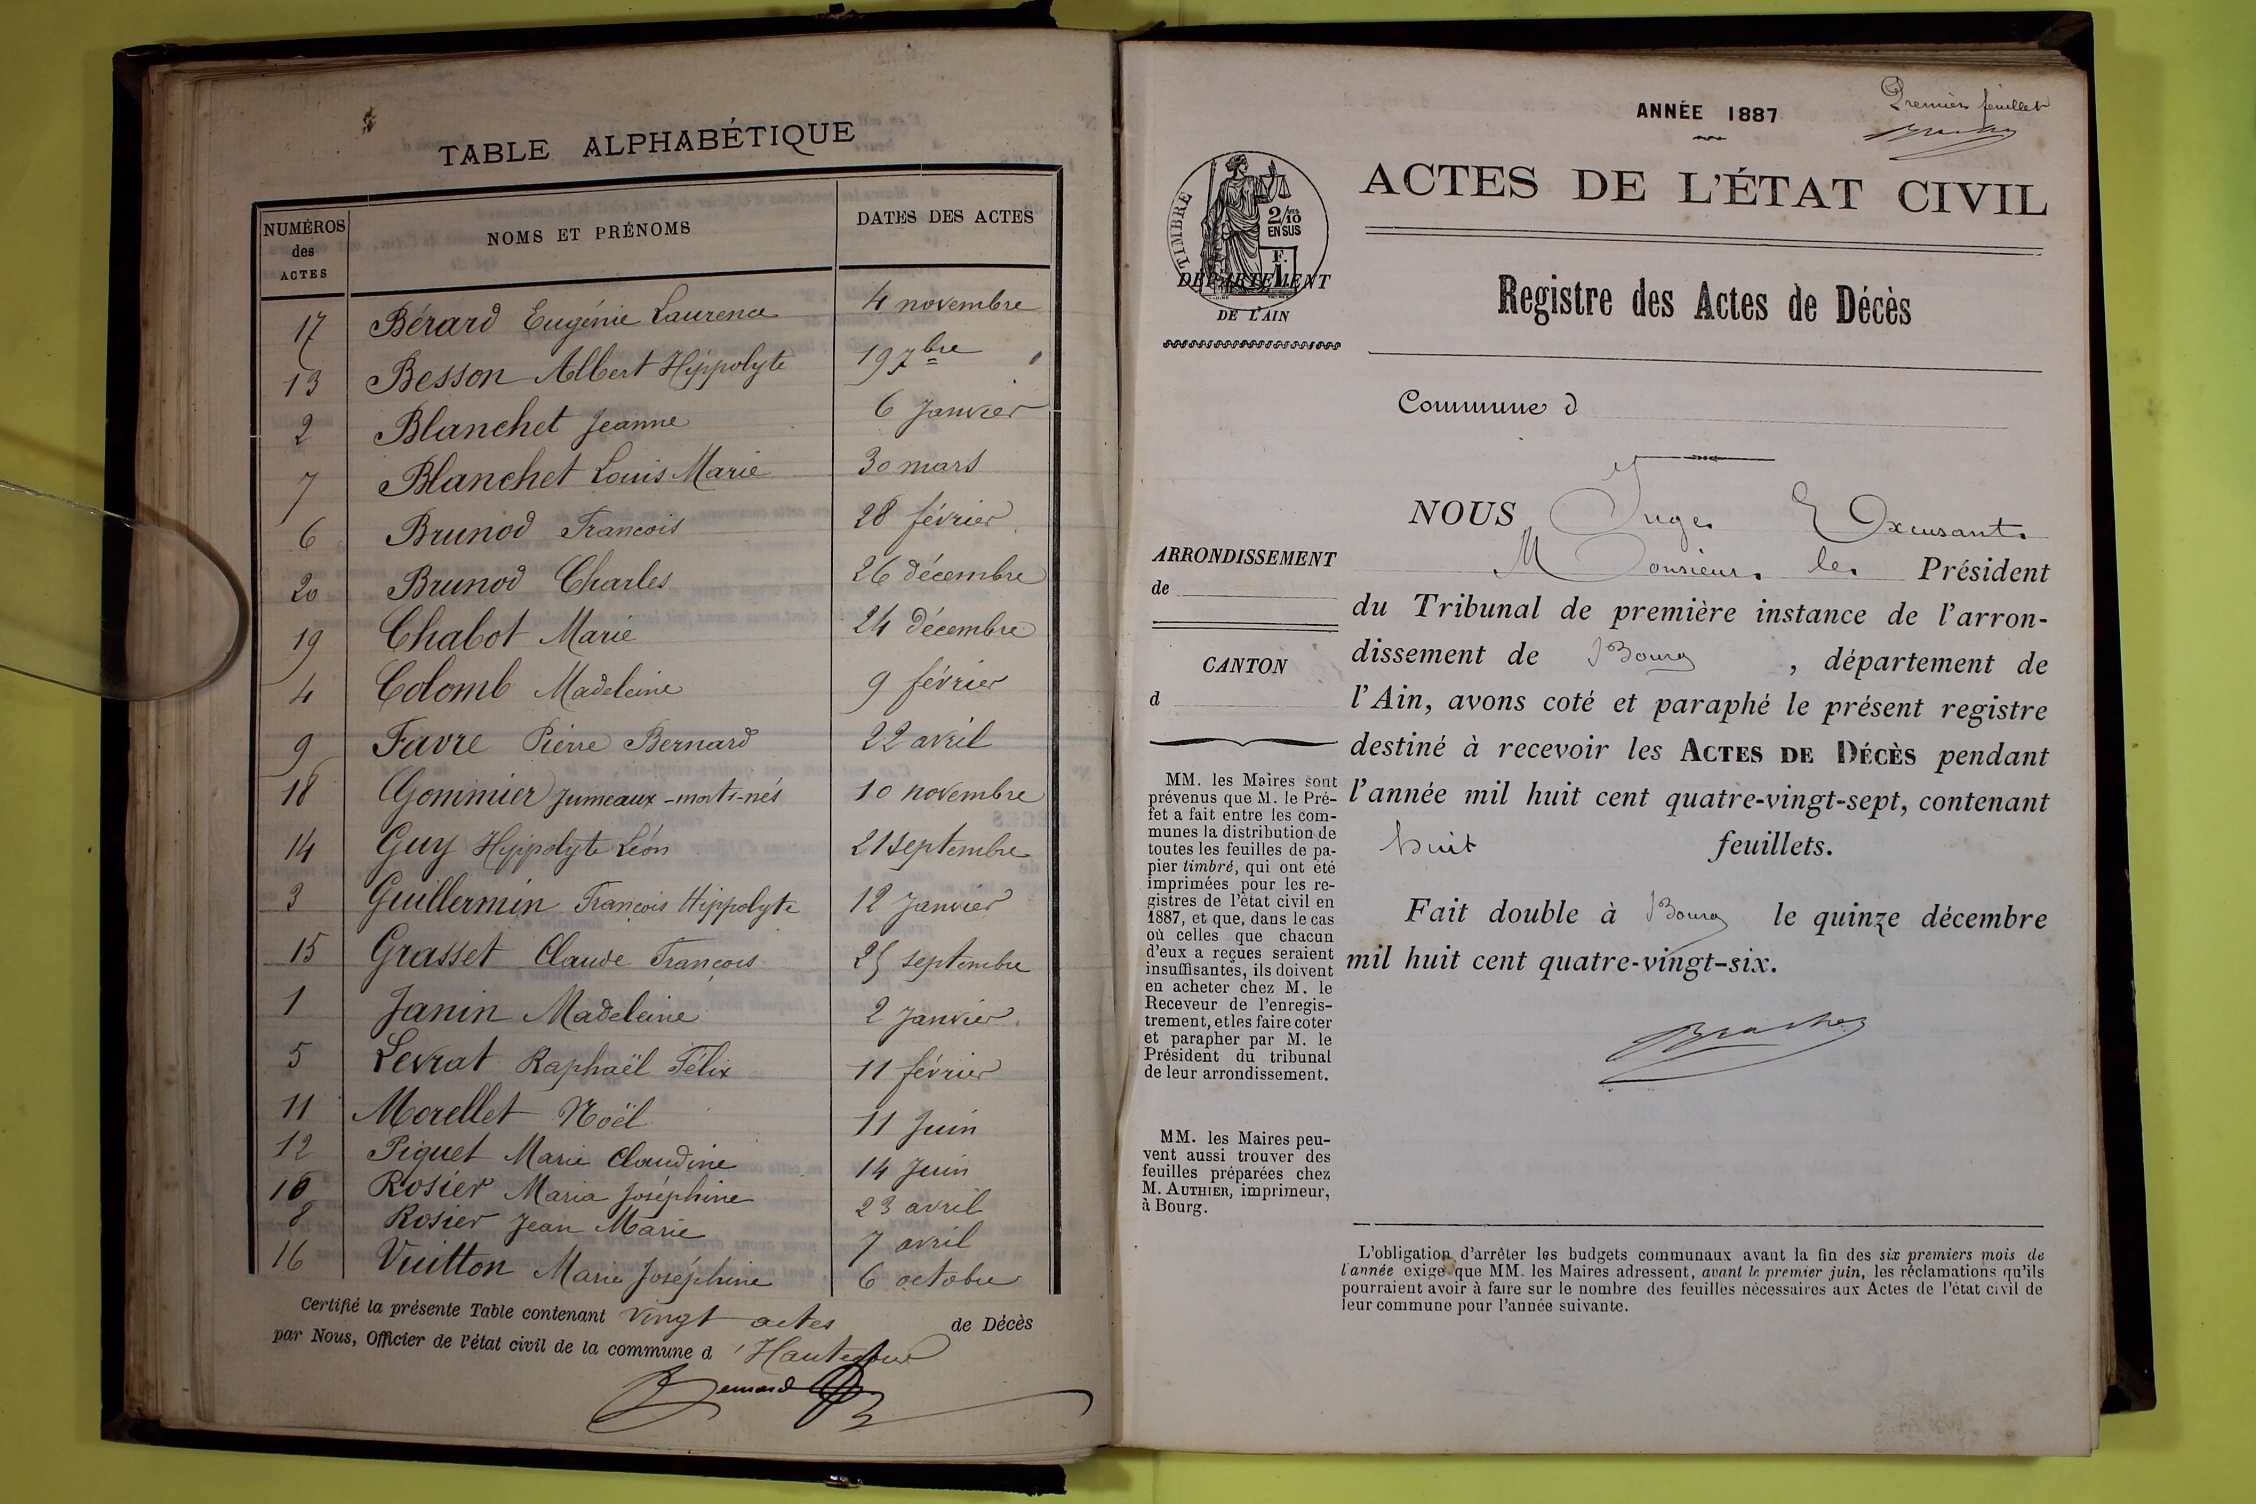 TABLE ALPHABÉTIQUE
NUMÉROS des ACTES NOMS ET PRÉNOMS DATES DES ACTES
17 Bérard Eugénie Laurence 4 novembre
13 Besson Albert Hippolyte 19 7bre
2 Blanchet Jeanne 6 Janvier
7 Blanchet Louis Marie 30 mars
6 Brunod Francois 28 février
20 Brunod Charles 26 décembre
19 Chabot Marie 24 décembre
4 Colomb Madeleine 9 février
9 Favre Pierre Bernard 22 avril
18 Gommier Jumeaux-morts-nés 10 novembre
14 Guy Hippolyte Léon 21 septembre
3 Guillermin François Hippolyte 12 Janvier
15 Grasset Claude François 25 septembre
1 Janin Madeleine 2 Janvier
5 Levrat Raphaël Félix 11 février
11 Morellet Noël 11 Juin
12 Piquet Marie Claudine 14 Juin
10 Rosier Maria Joséphine 23 avril
8 Rosier Jean Marie 7 avril
16 Vuitton Marie Joséphine 6 octobre
Certifié la présente Table contenant vingt actes de Décès
par Nous, Officier de l'état civil de la commune d
Bernard
Premier feuillet
ANNÉE 1887
ACTES DE L'ÉTAT CIVIL
TIMBRE
2/10
EN SUS
F.
1
DÉPARTEMENT
DE L'AIN
Registre des Actes de Décès
Commune d
NOUS Juge Excusant
Monsieur le Président
du Tribunal de première instance de l'arron-
dissement de Bourg, département de
l'Ain, avons coté et paraphé le présent registre
destiné à recevoir les ACTES DE DÉCÈS pendant
l'année mil huit cent quatre-vingt-sept, contenant
huit feuillets.
Fait double à Bourg le quinze décembre
mil huit cent quatre-vingt-six.
ARRONDISSEMENT
de
CANTON
d
MM. les Maires sont
prévenus que M. le Pré-
fet a fait entre les com-
munes la distribution de
toutes les feuilles de pa-
pier timbré, qui ont été
imprimées pour les re-
gistres de l'état civil en
1887, et que, dans le cas
où celles que chacun
d'eux a reçues seraient
insuffisantes, ils doivent
en acheter chez M. le
Receveur de l'enregis-
trement, et les faire coter
et parapher par M. le
Président du tribunal
de leur arrondissement.
MM. les Maires peu-
vent aussi trouver des
feuilles préparées chez
M. AUTHIER, imprimeur,
à Bourg.
L'obligation d'arrêter les budgets communaux avant la fin des six premiers mois de
l'année exige que MM. les Maires adressent, avant le premier juin, les réclamations qu'ils
pourraient avoir à faire sur le nombre des feuilles nécessaires aux Actes de l'état civil de
leur commune pour l'année suivante.